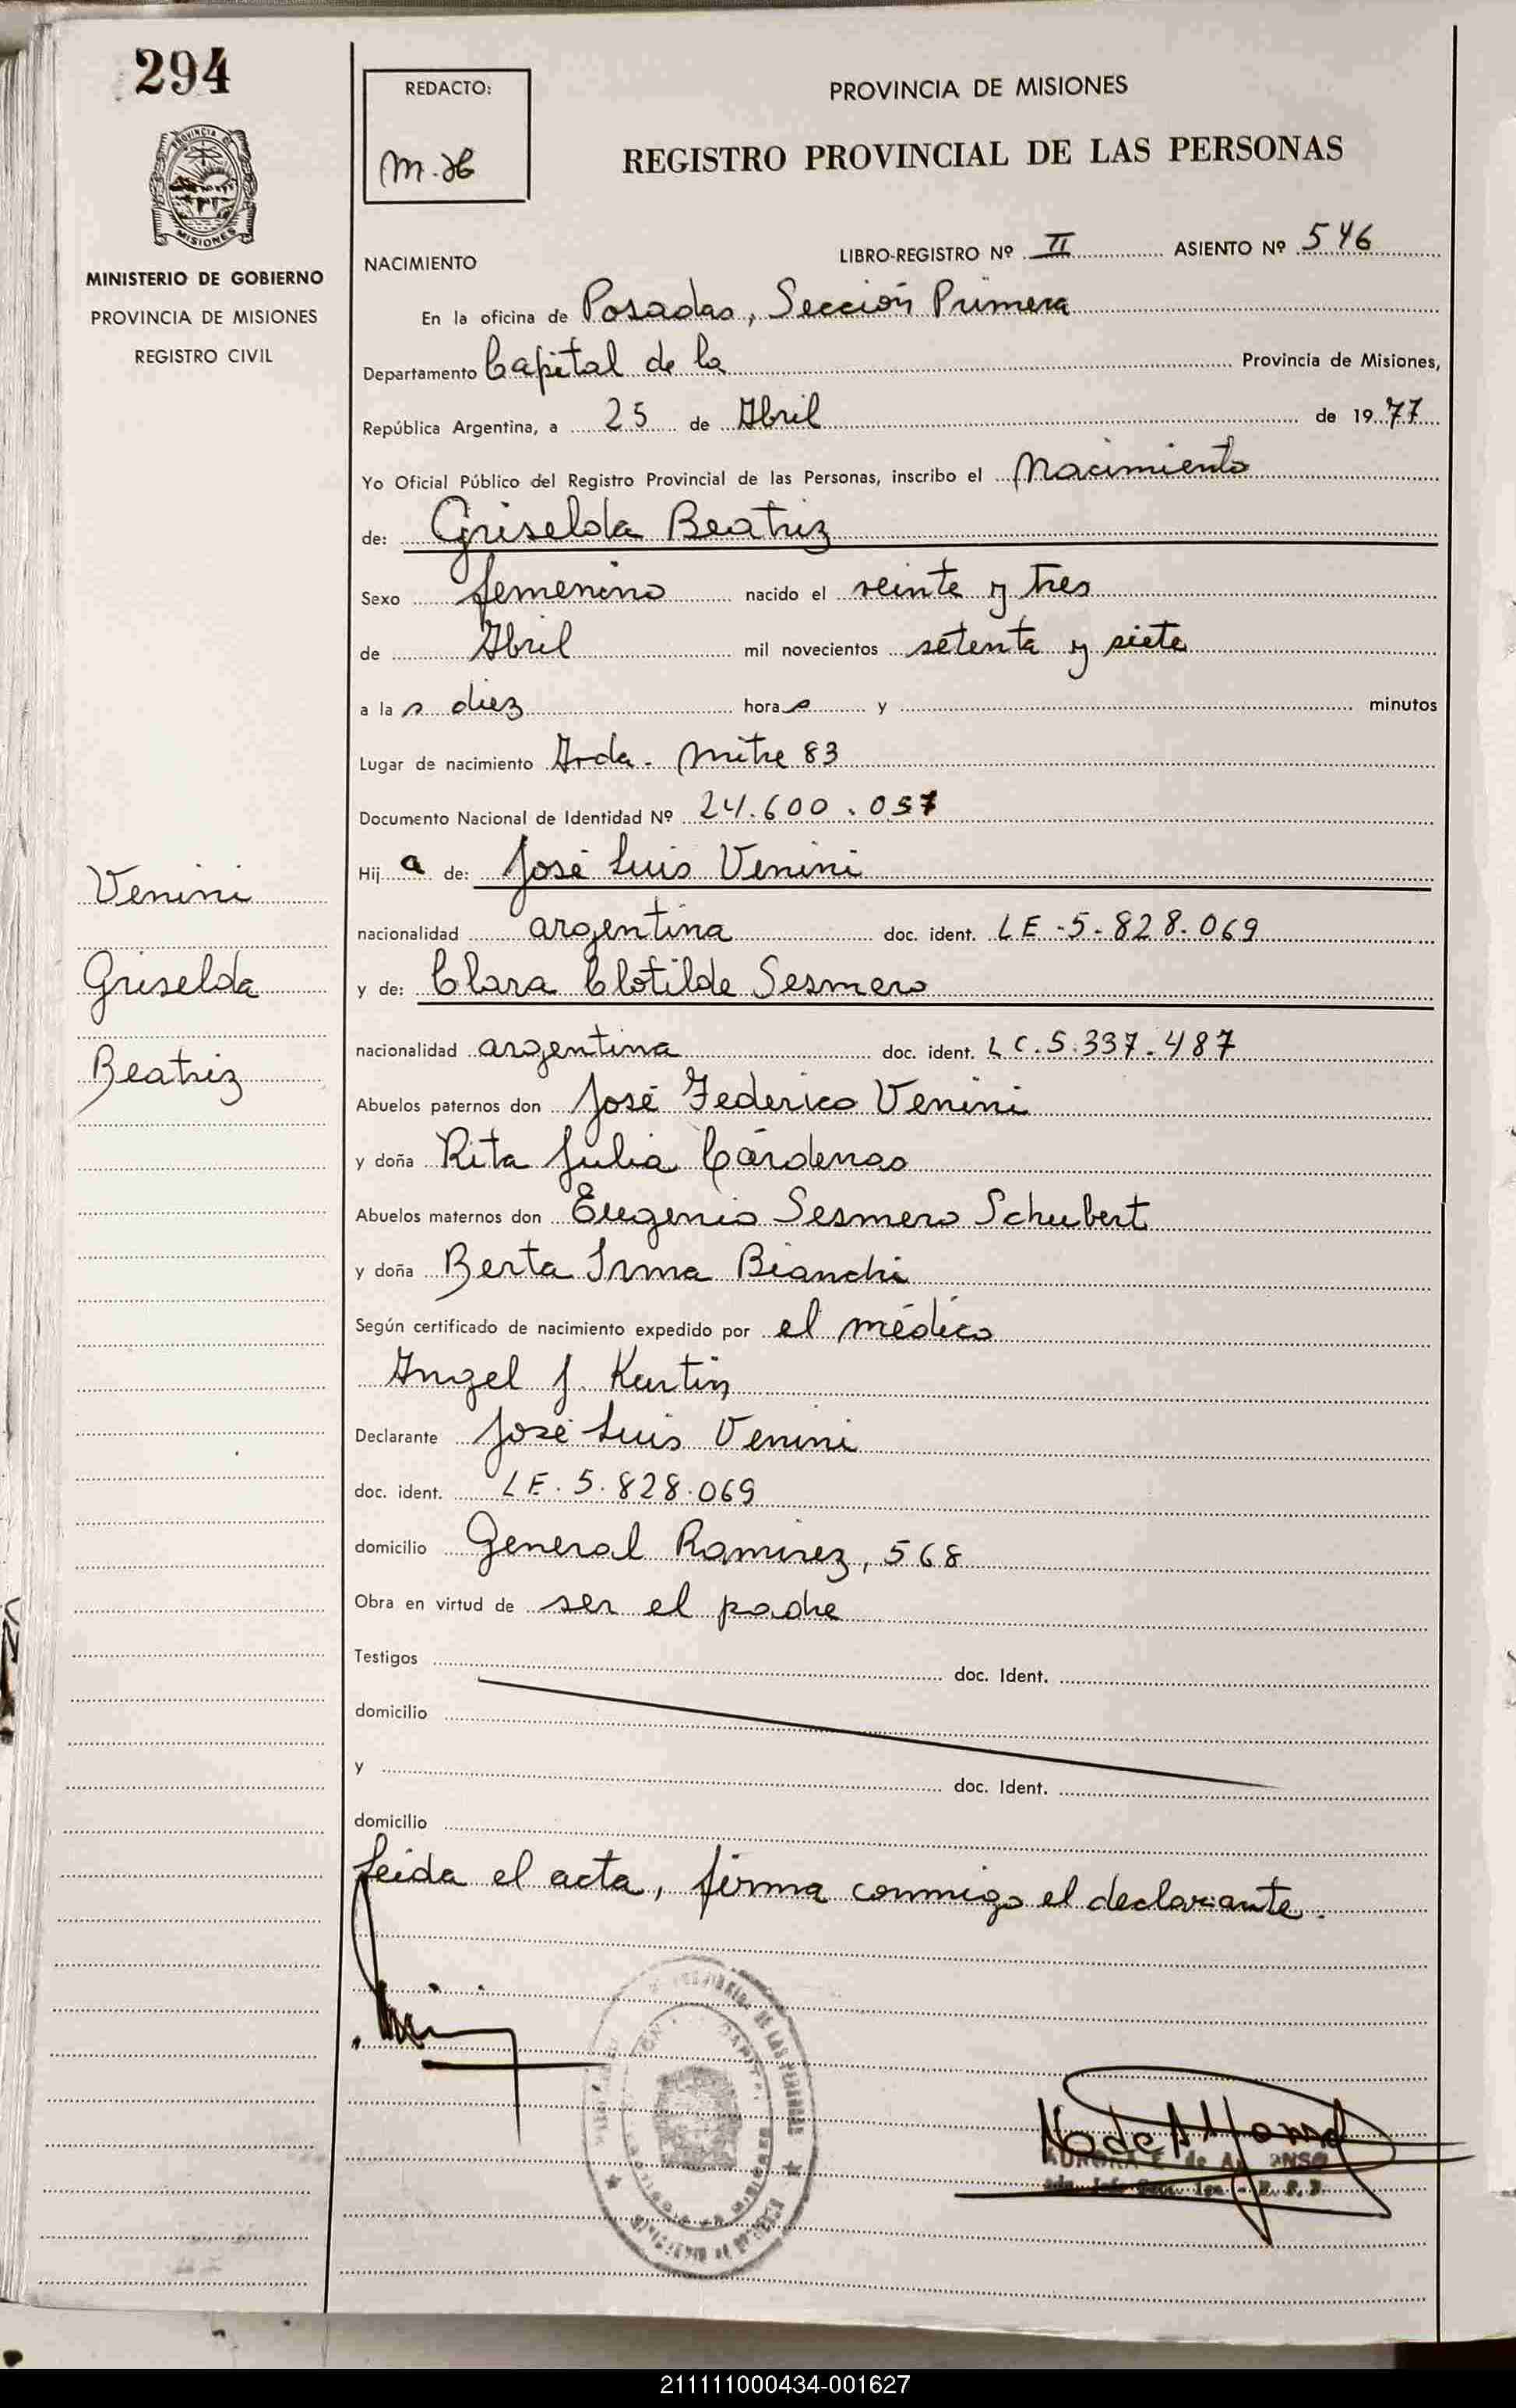 294
REDACTO:
m.H
PROVINCIA DE MISIONES
REGISTRO PROVINCIAL DE LAS PERSONAS
PROVINCIA DE
MISIONES
MINISTERIO DE GOBIERNO
PROVINCIA DE MISIONES
REGISTRO CIVIL
NACIMIENTO
LIBRO-REGISTRO Nº II ASIENTO Nº 546
En la oficina de Posadas, Sección Primera
Departamento Capital de la Provincia de Misiones,
República Argentina, a 25 de Abril de 1977
Yo Oficial Público del Registro Provincial de las Personas, inscribo el Nacimiento
de: Griselda Beatriz
Sexo femenino nacido el veinte y tres
de Abril mil novecientos setenta y siete
a las diez horas y minutos
Lugar de nacimiento Avda. Mitre 83
Documento Nacional de Identidad Nº 24.600.057
Hija de: José Luis Venini
nacionalidad argentina doc. ident. LE-5-828.069
y de: Clara Clotilde Sesmero
nacionalidad argentina doc. ident. LC.5.337.487
Abuelos paternos don José Federico Venini
y doña Rita Julia Cárdenas
Abuelos maternos don Eugenio Sesmero Schubert
y doña Berta Irma Bianchi
Según certificado de nacimiento expedido por el médico
Angel J. Kurtin
Declarante José Luis Venini
doc. ident. LE.5.828.069
domicilio General Ramirez, 568
Obra en virtud de ser el padre
Testigos doc. Ident.
domicilio
y doc. Ident.
domicilio
Leida el acta, firma conmigo el declarante.
Venini
Griselda
Beatriz
DE LAS PERSONAS
211111000434-001627